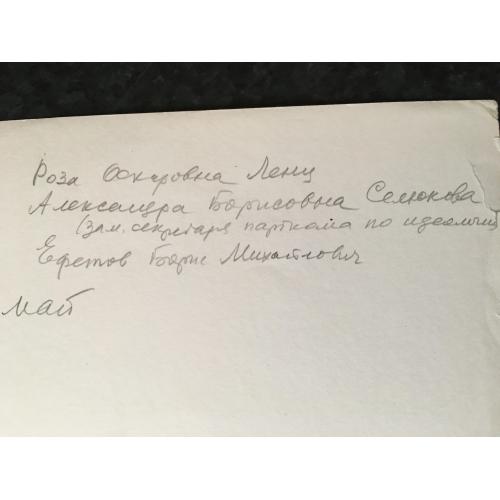 Роза Оскаровна Ленц
Александра Борисовна Селюкова
(зам. секретаря парткома по идеологии)
Ефетов Борис Михайлович
май